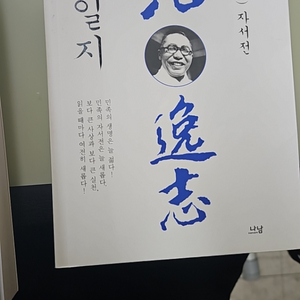 ) 자서전
逸志
일지
민족의 생명은 늘 젊다!
민족의 자서전은 늘 새롭다.
보다 큰 사상과 보다 큰 실천,
읽을 때마다 여전히 새롭다!
나남